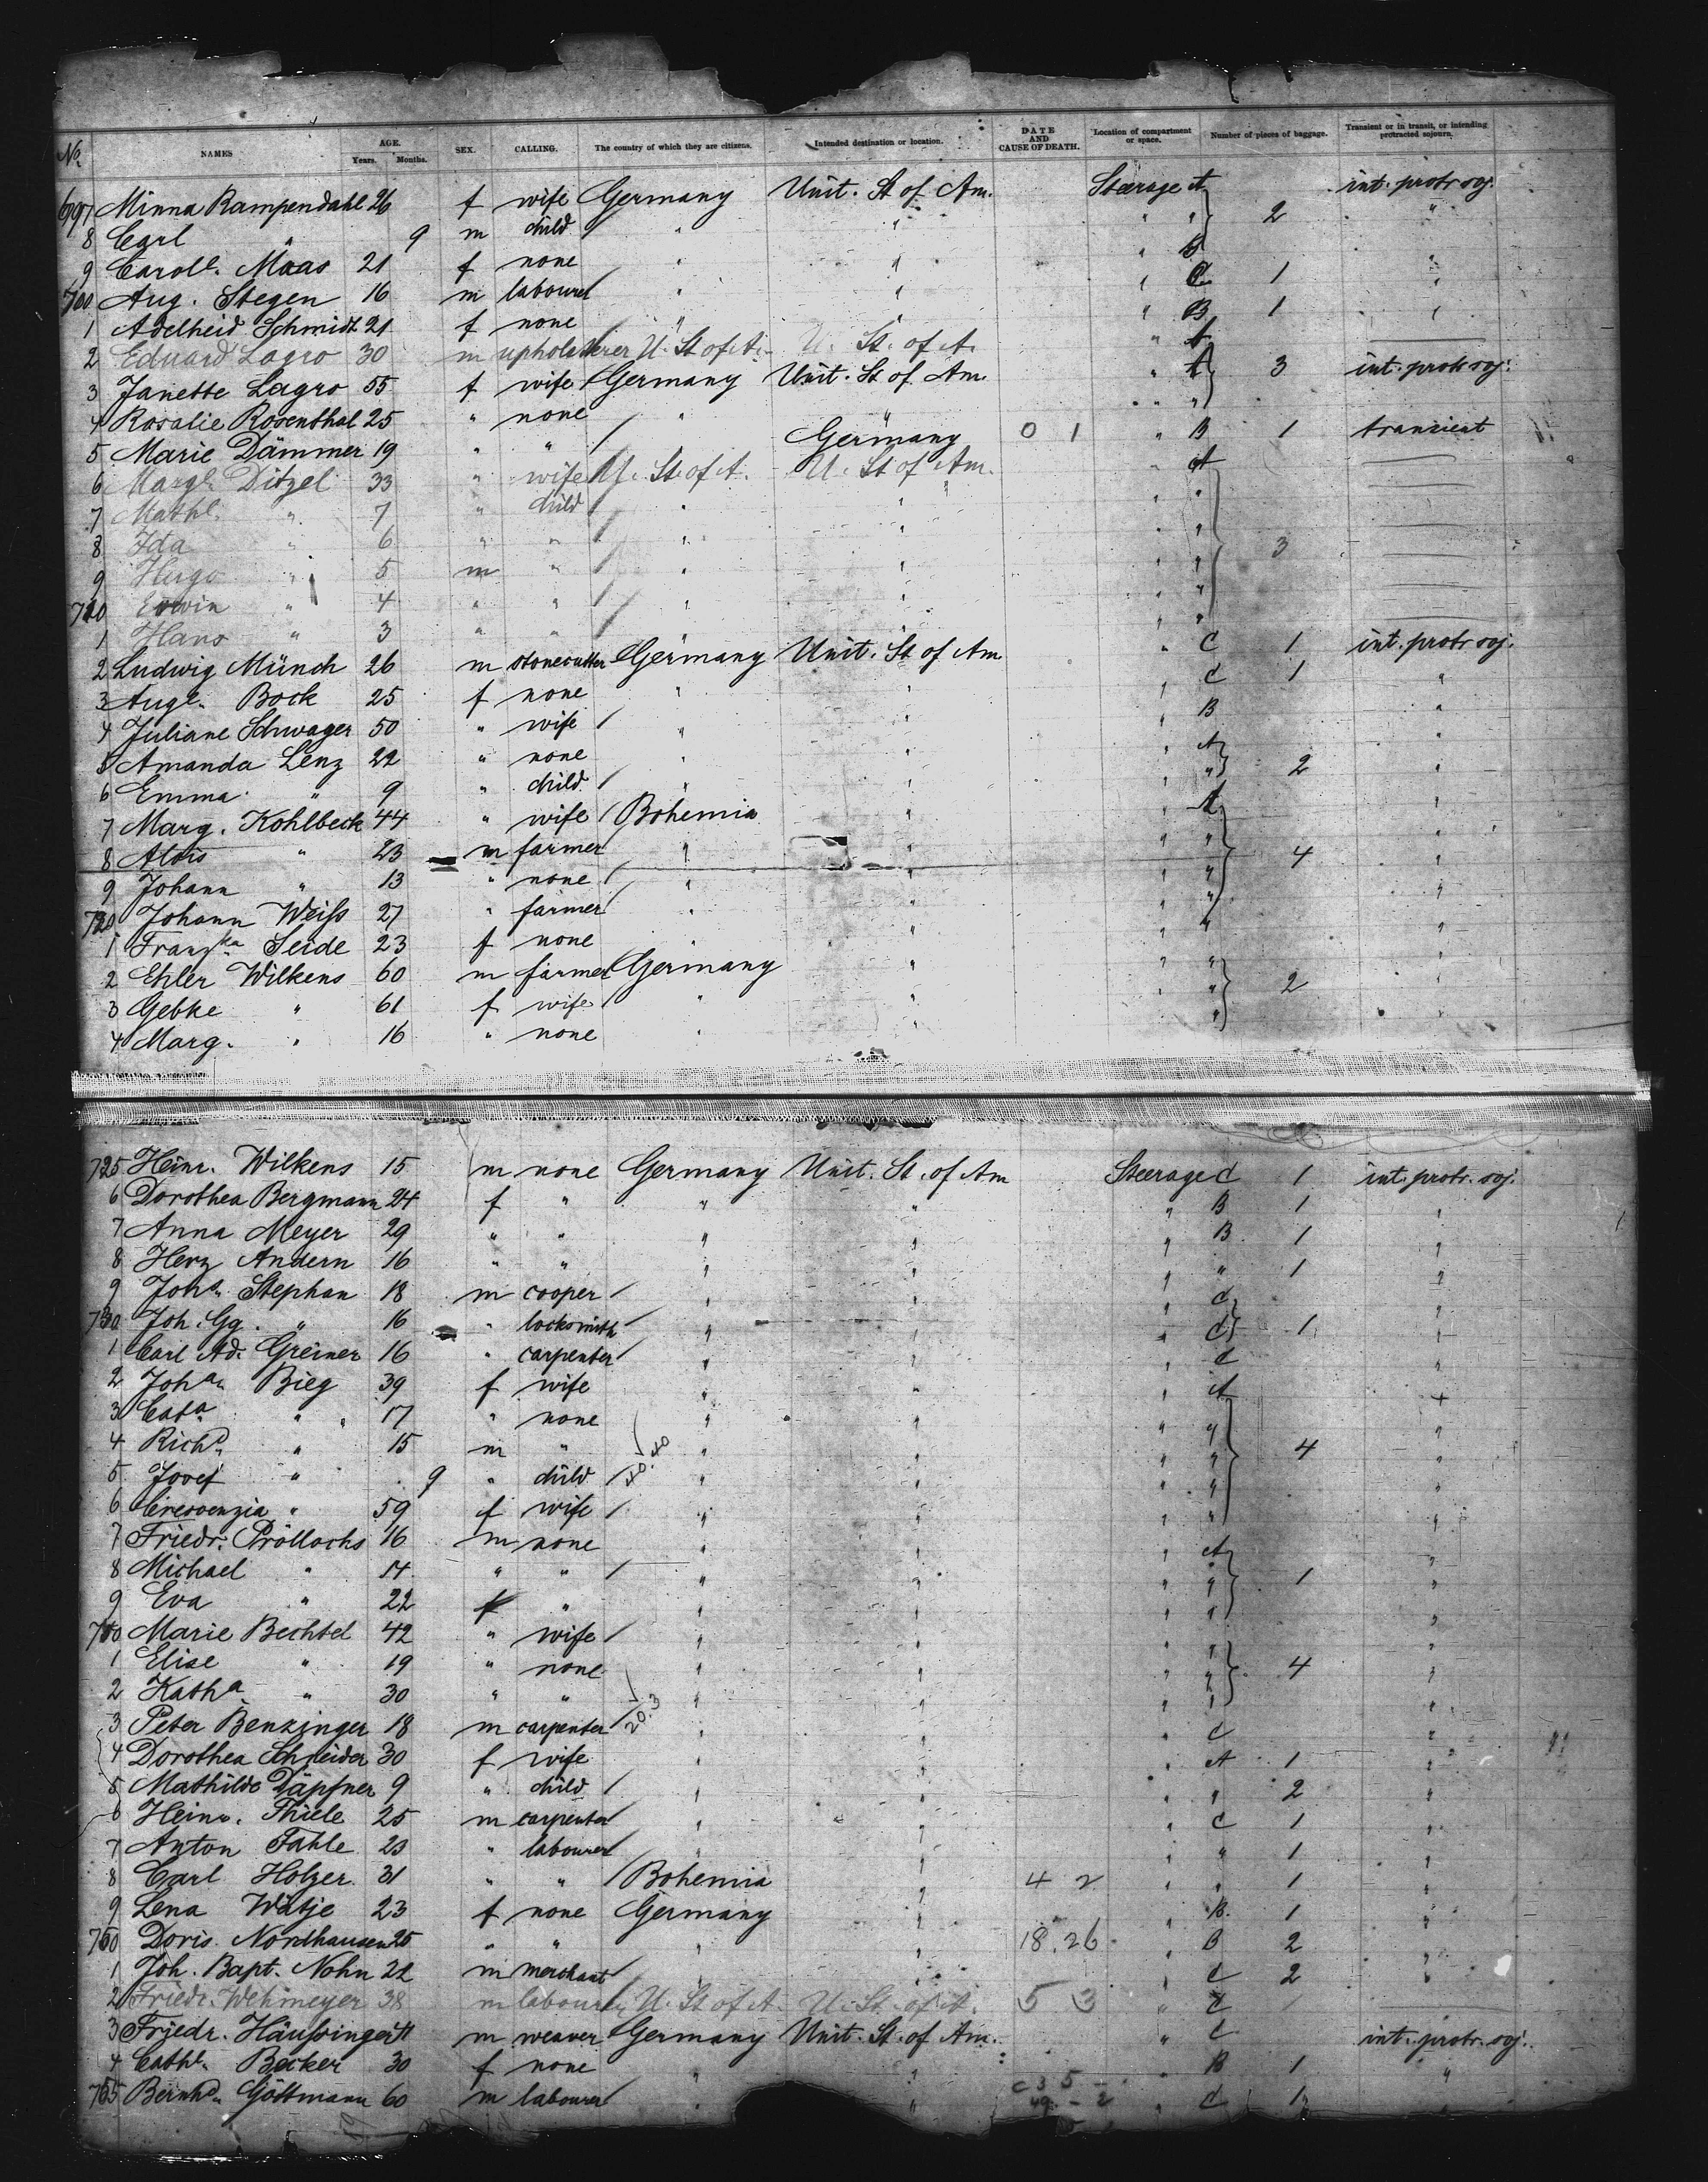 No. NAMES AGE. Years. Months. SEX. CALLING. The country of which they are citizens. Intended destination or location. DATE AND CAUSE OF DEATH. Location of compartment or space. Number of pieces of baggage. Transient or in transit, or intending protracted sojourn.
697 Minna Rampendahl 26 f wife Germany Unit. St. of Am. Steerage A int. protr. soj.
8 Carl " 9 m child " " " " 2 "
9 Caroll. Maas 21 f none " " " B "
700 Aug. Stegen 16 m labourer " " " C 1 "
1 Adelheid Schmidt 21 f none " " " B 1 "
2 Eduard Lagro 30 m upholsterer U. St. of A. U. St. of A. " A
3 Janette Lagro 55 f wife Germany Unit. St. of Am. " A 3 int. protr. soj.
4 Rosalie Rosenthal 25 " none " " " "
5 Marie Dämmer 19 " " " Germany 0 1 " B 1 transient
6 Margt. Ditzel 33 " wife U. St. of A. U. St. of Am. " A
7 Mathl. " 7 " child " " " "
8 Ida " 6 " " " " " " 3
9 Hugo " 5 m " " " " "
710 Erwin " 4 " " " " " "
1 Hans " 3 " " " " " "
2 Ludwig Münch 26 m stonecutter Germany Unit. St. of Am. " C 1 int. protr. soj.
3 Auge. Bock 25 f none " " " C 1 "
4 Juliane Schwager 50 " wife " " " B "
5 Amanda Lenz 22 " none " " " A "
6 Emma " 9 " child " " " " 2 "
7 Marg. Kohlbeck 44 " wife Bohemia " " A "
8 Alois " 23 m farmer " " " " 4 "
9 Johann " 13 " none " " " " "
720 Johann Weiss 27 " farmer " " " " "
1 Franzka Seide 23 f none " " " " "
2 Ehler Wilkens 60 m farmer Germany " " " "
3 Gebke " 61 f wife " " " " 2 "
4 Marg. " 16 " none " " " " "
725 Heinr. Wilkens 15 m none Germany Unit. St. of Am Steerage C 1 int. protr. soj.
6 Dorothea Bergmann 24 f " " " " B 1 "
7 Anna Meyer 29 " " " " " B 1 "
8 Herz Andern 16 " " " " " " 1 "
9 Joha. Stephan 18 m cooper " " " C "
730 Joh. Gg. " 16 " locksmith " " " C 1 "
1 Carl Ad. Greiner 16 " carpenter " " " C "
2 Joha. Bieg 39 f wife " " " A "
3 Cata " 17 " none " " " " "
4 Richd. " 15 m " " " " " 4 "
5 Josef " 9 " child " " " " "
6 Crescenzia " 59 f wife " " " " "
7 Friedr. Pröllochs 16 m none " " " A "
8 Michael " 14 " " " " " " 1 "
9 Eva " 22 f " " " " " "
740 Marie Bechtel 42 " wife " " " " "
1 Elise " 19 " none " " " " 4 "
2 Katha " 30 " " " " " " "
3 Peter Benzinger 18 m carpenter 20.3 " " " C "
4 Dorothea Schneider 30 f wife " " " A 1 "
5 Mathilde Däpfner 9 " child " " " " 2 "
6 Heinr. Thiele 25 m carpenter " " " C 1 "
7 Anton Fahle 23 " labourer " " " " 1 "
8 Carl Holzer 31 " " Bohemia " 4 2 " " 1 "
9 Lena Wätje 23 f none Germany " " B. 1 "
750 Doris Nordhausen 25 " " " " 18.26 " B 2 "
1 Joh. Bapt. Nohn 22 m merchant " " " C 2 "
2 Friedr. Wehmeyer 38 m labourer U. St. of A. U. St. of A. 5 3 " C 1
3 Friedr. Häussinger m weaver Germany Unit. St. of Am. " C int. protr. soj.
4 Cathe. Becker 30 f none " " " B 1 "
755 Bernhd. Göttmann 60 m labourer " " " C 1 "